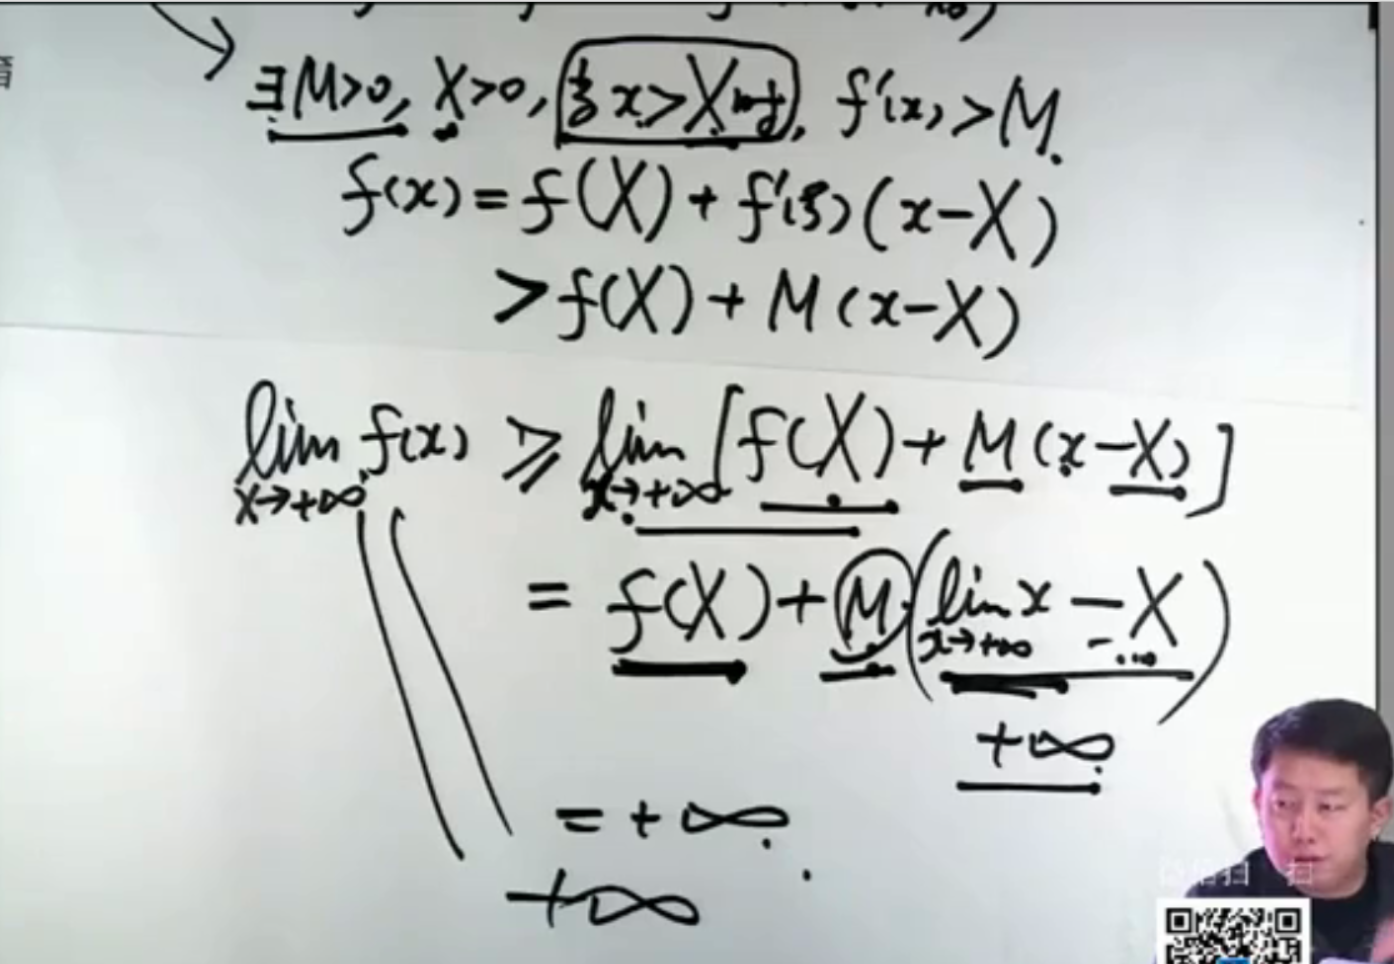 ∃M>0, X>0, 当 x>X时, f'(x)>M.
f(x)=f(X)+f'(ξ)(x-X)
>f(X)+M(x-X)
lim x→+∞ f(x) ≥ lim x→+∞ [f(X)+M(x-X)]
= f(X)+M·(lim x→+∞ x -X)
+∞
=+∞.
+∞